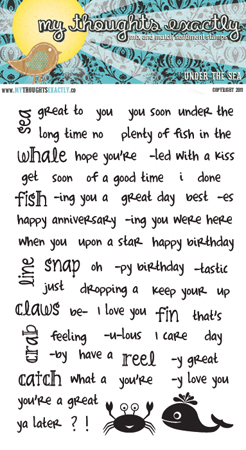 my thoughts exactly
mix and match sentiment stamps
UNDER THE SEA
WWW.MYTHOUGHTSEXACTLY.CO
COPYRIGHT 2011
sea great to you you soon under the
long time no plenty of fish in the
whale hope you're -led with a kiss
get soon of a good time i done
fish -ing you a great day best -es
happy anniversary -ing you were here
when you upon a star happy birthday
line snap oh -py birthday -tastic
just dropping a keep your up
claws be- I love you fin that's
crab feeling -u-lous I care day
-by have a reel -y great
catch what a you're -y love you
you're a great
ya later ? !